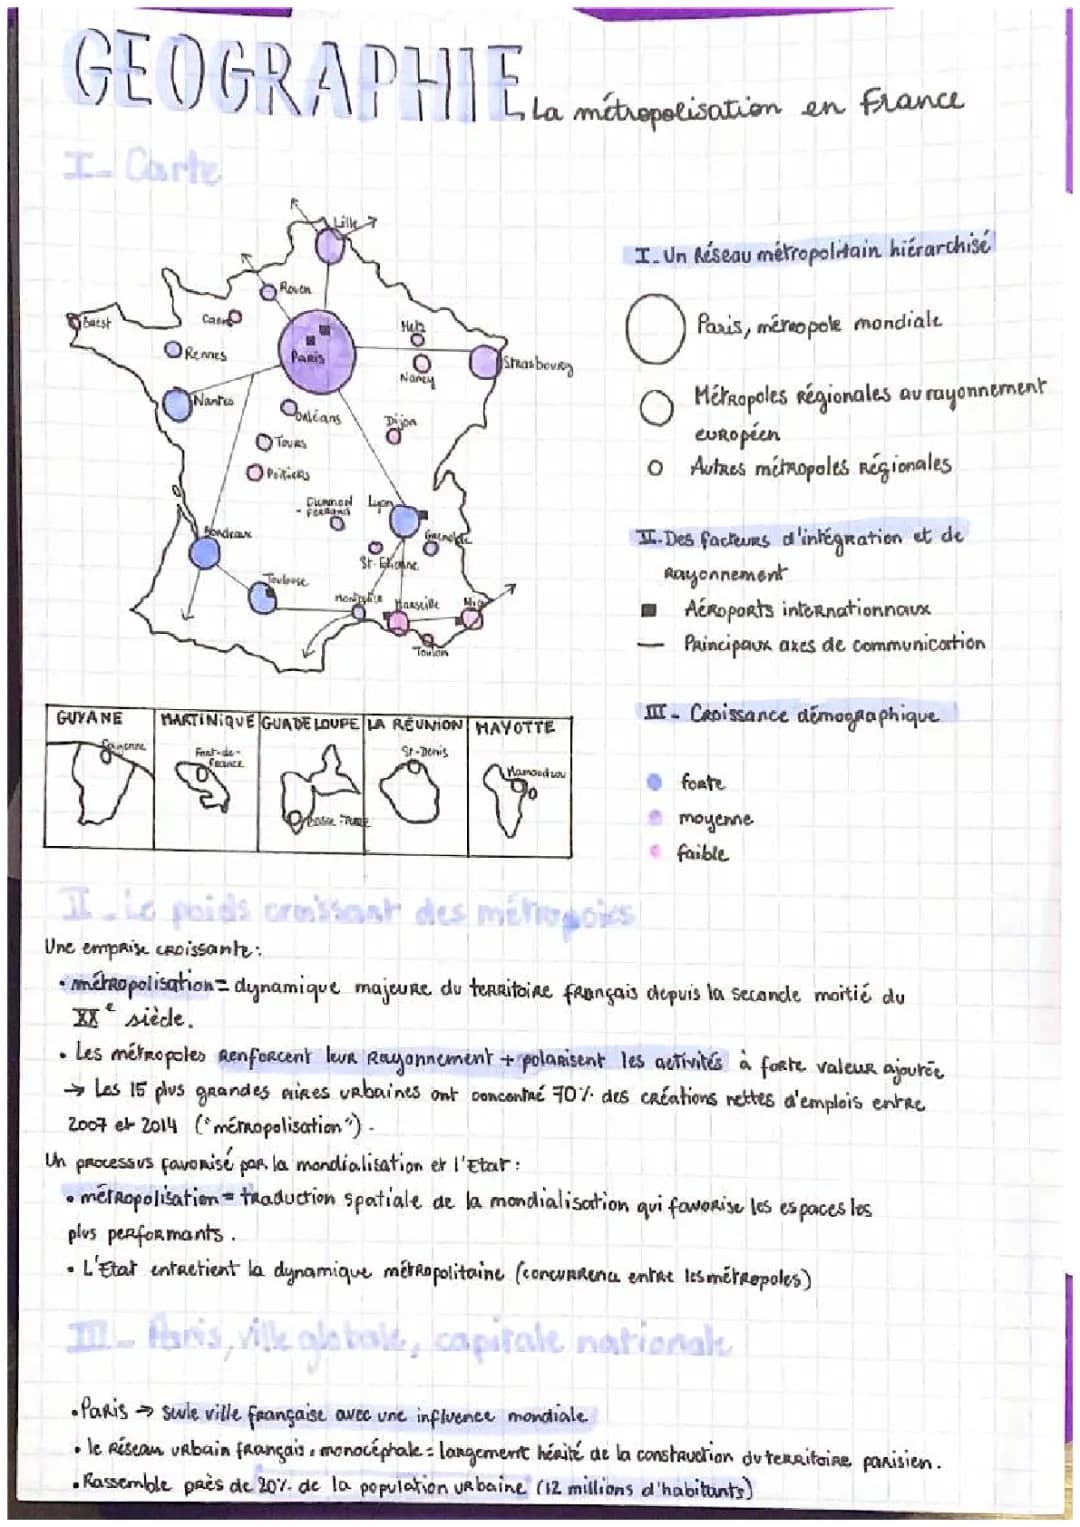 GEOGRAPHIE
La métropolisation en France
I- Carte
Lille
Rouen
Brest
Caen
Metz
Rennes
PARIS
Strasbourg
Nancy
Nantes
Orléans
Dijon
Tours
Poitiers
Clermont
- Ferrand
Lyon
Bordeaux
Grenoble
St-Etienne
Toulouse
Montpellier
Marseille
Nice
Toulon
I. Un Réseau métropolitain hiérarchisé
Paris, métropole mondiale
Métropoles régionales au rayonnement
européen
Autres métropoles régionales
II. Des facteurs d'intégration et de
Rayonnement
Aéroports internationnaux
Principaux axes de communication
III- Croissance démographique
forte
moyenne
faible
GUYANE
MARTINIQUE
GUADELOUPE
LA RÉUNION
MAYOTTE
Cayenne
Fort-de-
France
Basse-Terre
St-Denis
Mamoudzou
II- Le poids croissant des métropoles
Une emprise croissante:
• métropolisation = dynamique majeure du territoire français depuis la seconde moitié du
XXe siècle.
• Les métropoles renforcent leur Rayonnement + polarisent les activités à forte valeur ajoutée
→ Les 15 plus grandes aires urbaines ont concentré 70% des créations nettes d'emplois entre
2007 et 2014 ("métropolisation").
Un processus favorisé par la mondialisation et l'Etat:
• métropolisation = traduction spatiale de la mondialisation qui favorise les espaces les
plus performants.
• L'Etat entretient la dynamique métropolitaine (concurrence entre les métropoles)
III- Paris, ville globale, capitale nationale
• Paris → seule ville française avec une influence mondiale
• le Réseau urbain français, monocéphale = largement hérité de la construction du territoire parisien.
• Rassemble près de 20% de la population urbaine (12 millions d'habitants)